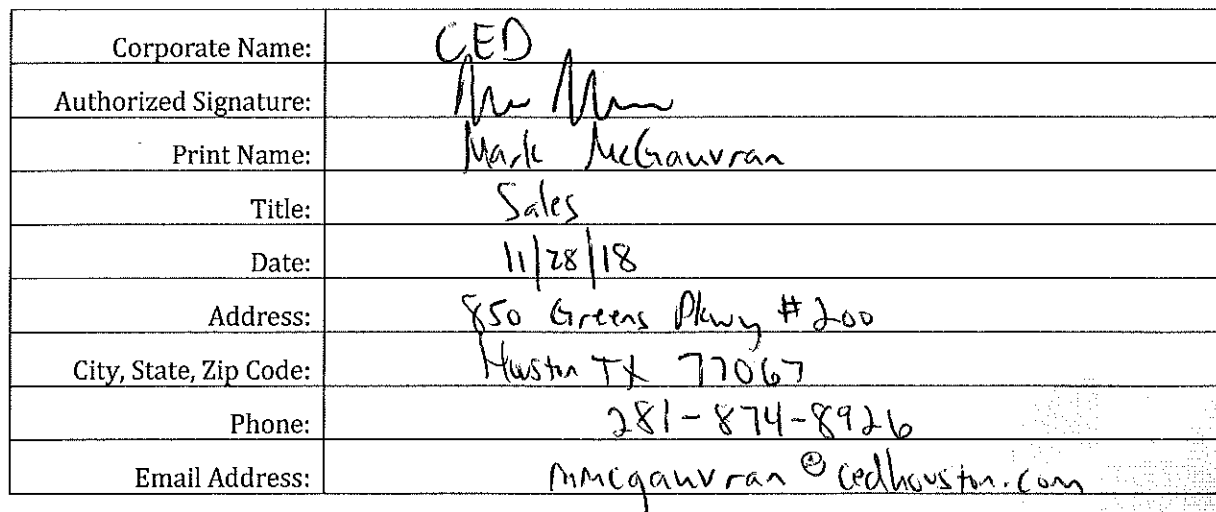 Corporate Name: CED
Authorized Signature:
Print Name: Mark McGauvran
Title: Sales
Date: 11/28/18
Address: 850 Greens Pkwy #200
City, State, Zip Code: Houston TX 77067
Phone: 281-874-8926
Email Address: mmcgauvran@cedhouston.com